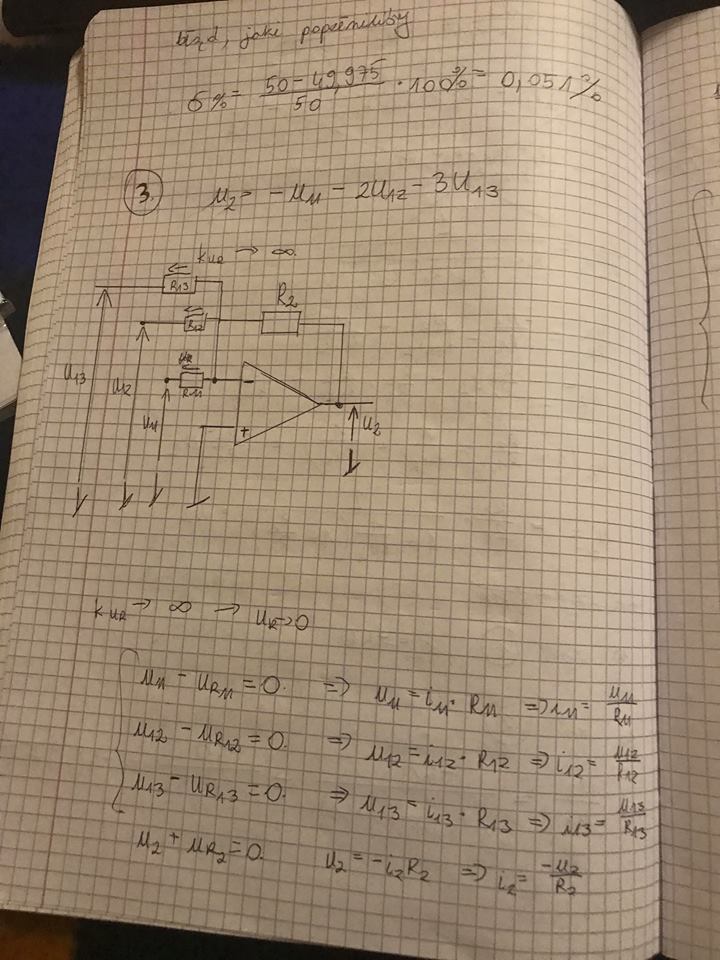 błąd, jaki popełniliby
δ% = (50 - 49,975)/50 · 100% = 0,051%
3. u2 = -u11 - 2u12 - 3u13
kuR → ∞.
R13
R12
R2
uR
R11
u13
u12
u11
-
+
u2
kuR → ∞ → uR→0
u11 - uR11 = 0. => u11 = i11 · R11 => i11 = u11/R11
u12 - uR12 = 0. => u12 = i12 · R12 => i12 = u12/R12
u13 - uR13 = 0. => u13 = i13 · R13 => i13 = u13/R13
u2 + uR2 = 0. u2 = -i2R2 => i2 = -u2/R2